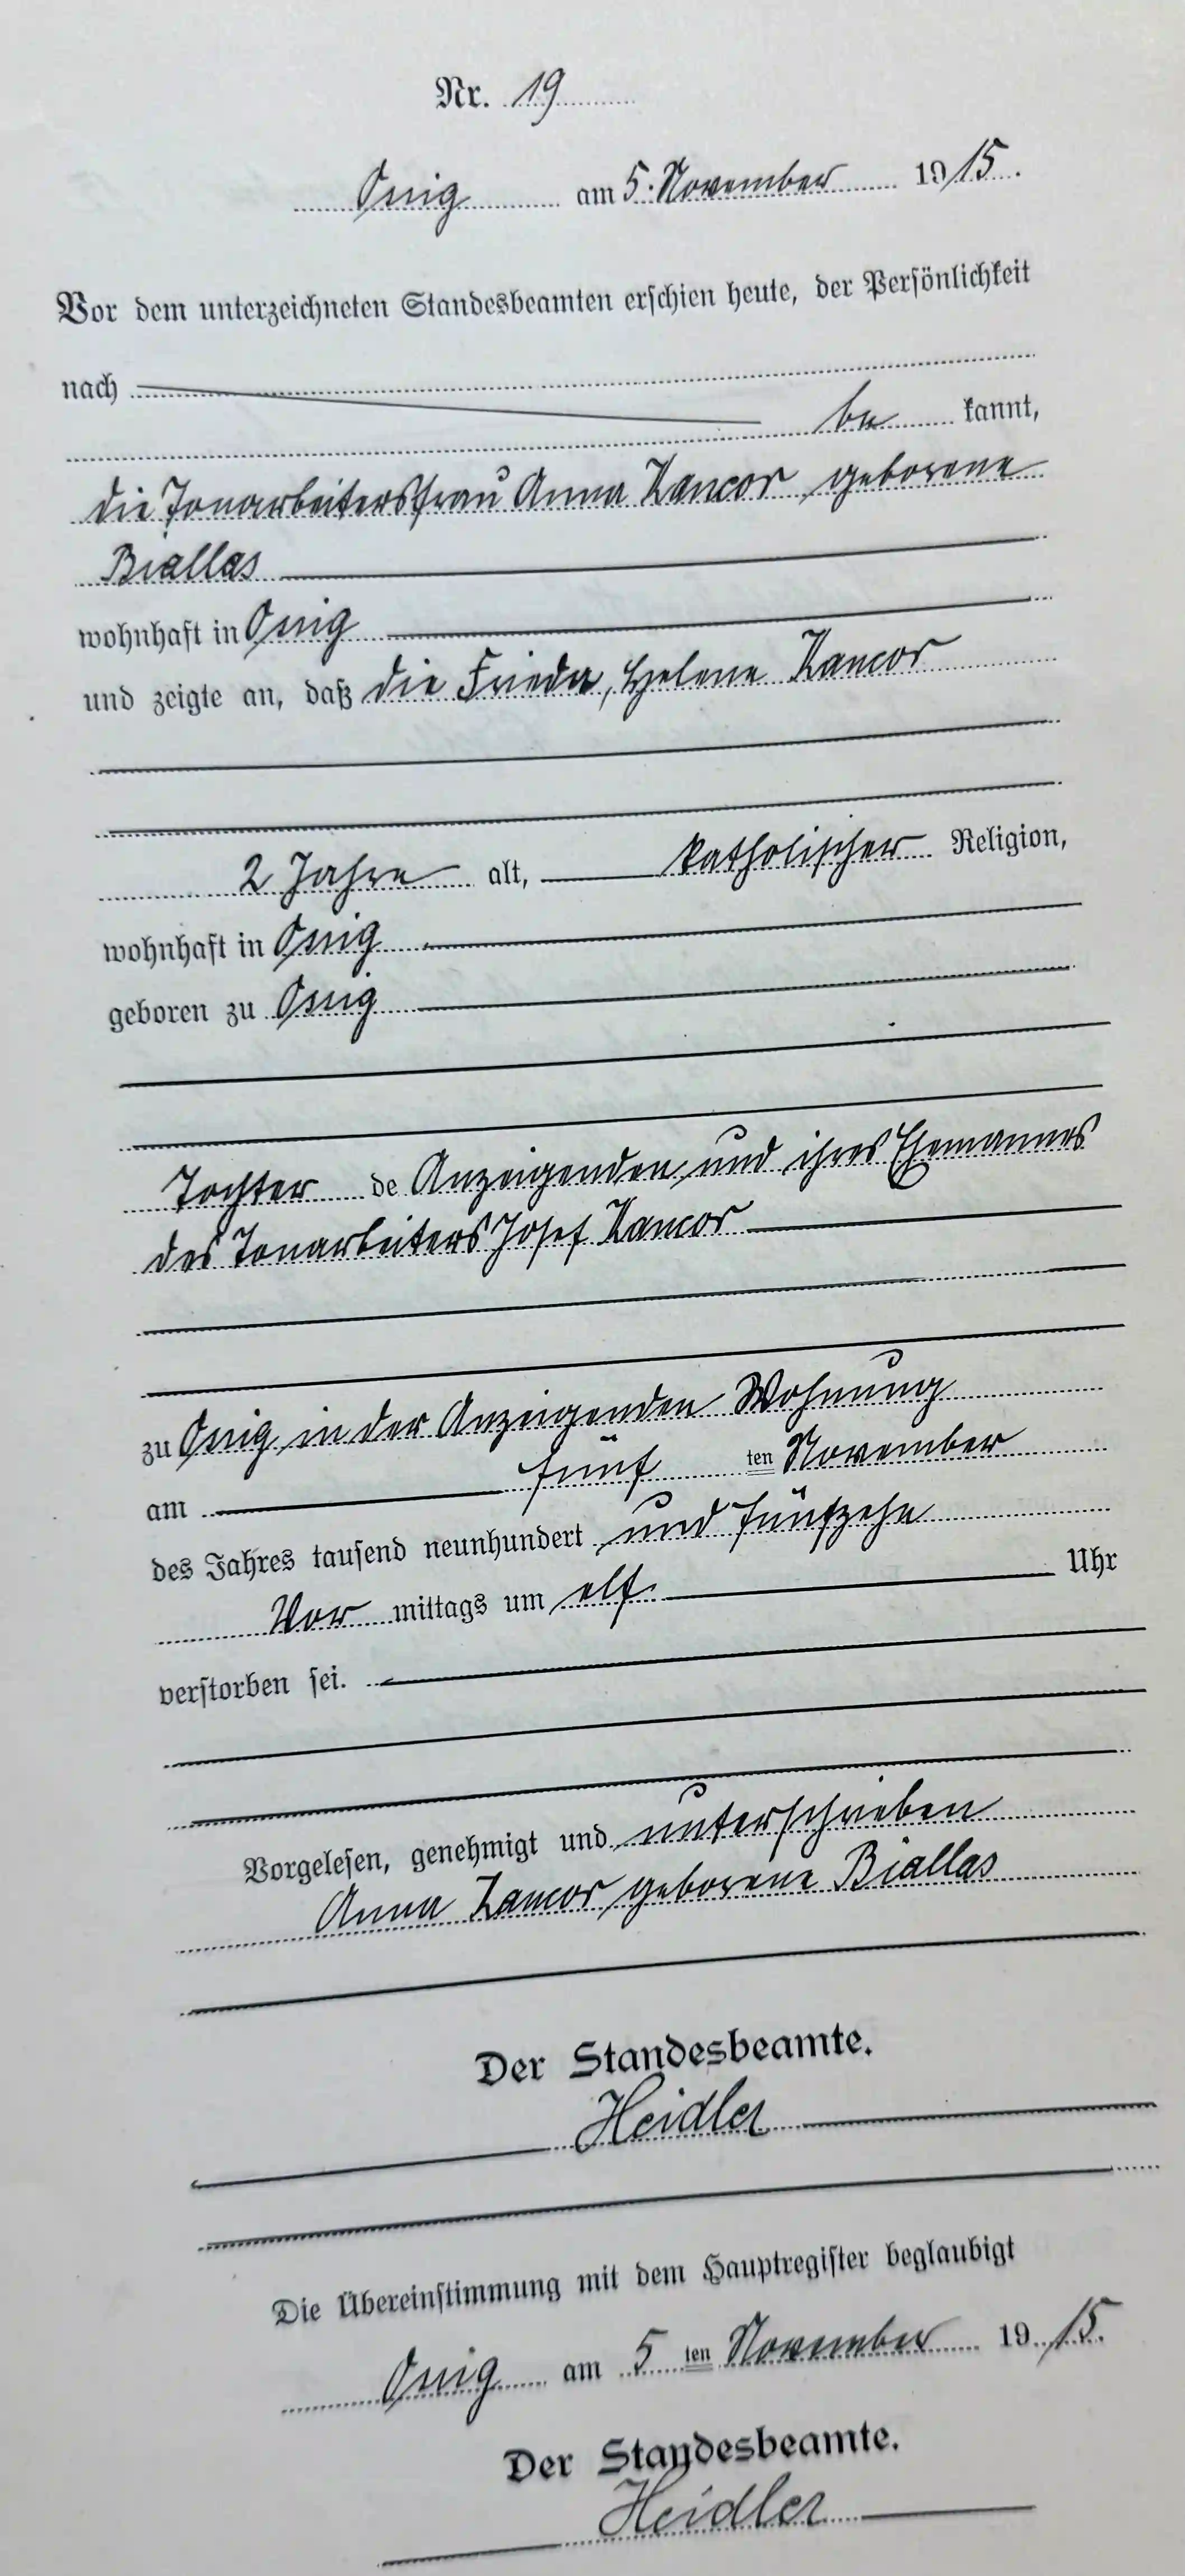 Nr. 19
Ossig am 5. November 1915.
Vor dem unterzeichneten Standesbeamten erschien heute, der Persönlichkeit
nach
be kannt,
die Tonarbeitersfrau Anna Kancor geborene
Biallas
wohnhaft in Ossig
und zeigte an, daß die Frieda, Helene Kancor
2 Jahre alt, katholischer Religion,
wohnhaft in Ossig
geboren zu Ossig
Tochter de Anzeigenden und ihres Ehemannes
des Tonarbeiters Josef Kancor
zu Ossig in der Anzeigenden Wohnung
am fünf ten November
des Jahres tausend neunhundert und fünfzehn
Vor mittags um elf Uhr
verstorben sei.
Vorgelesen, genehmigt und unterschrieben
Anna Kancor geborene Biallas
Der Standesbeamte.
Heidler
Die Übereinstimmung mit dem Hauptregister beglaubigt
Ossig am 5 ten November 1915.
Der Standesbeamte.
Heidler